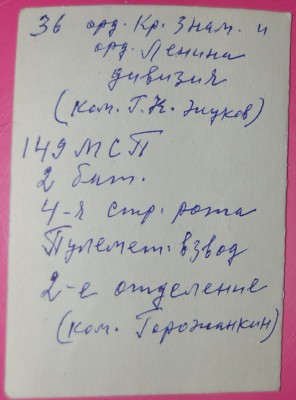 36 орд. Кр. Знам. и
орд. Ленина
дивизия
(ком. Г. К. Жуков)
149 МСП
2 бат.
4-я стр. рота
Пулемет. взвод
2-е отделение
(ком. Горожанкин)